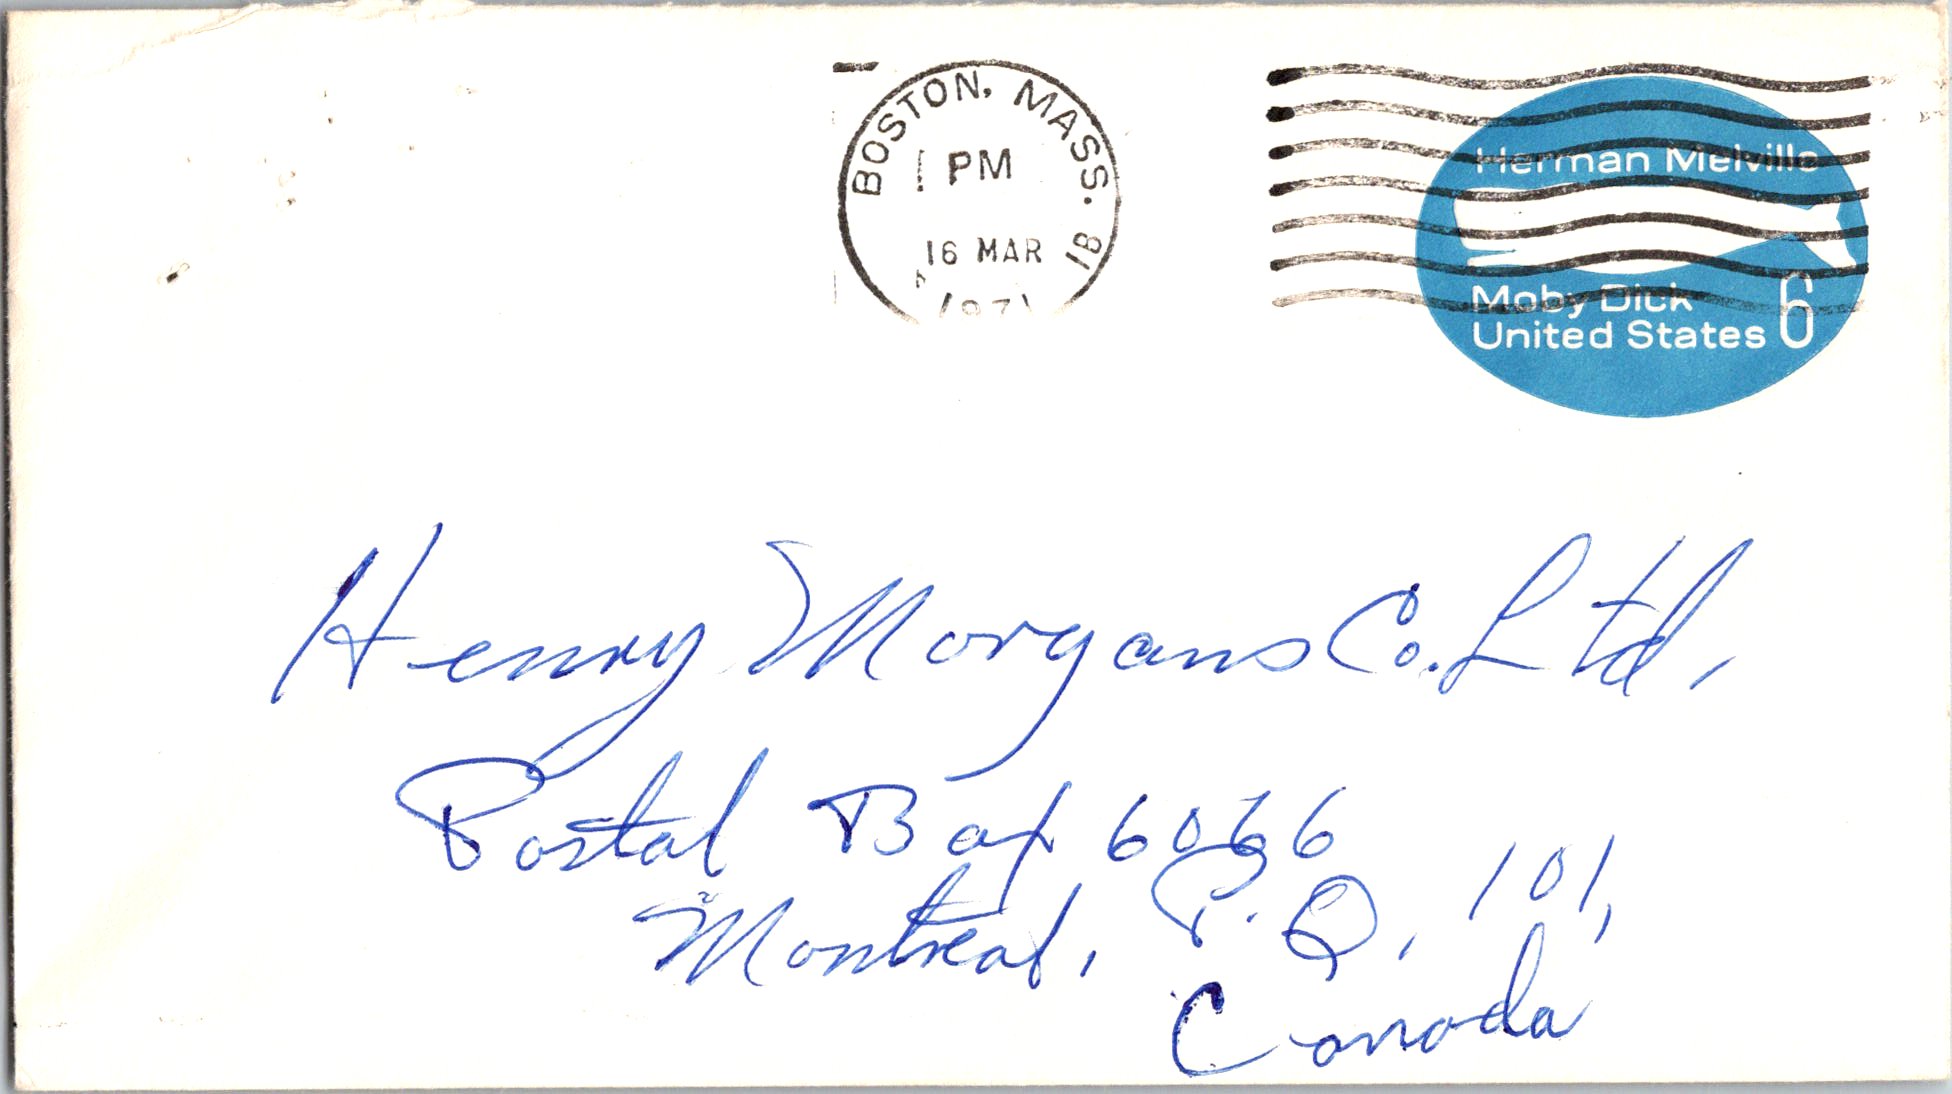 BOSTON, MASS. 1B
PM
16 MAR
1971
Herman Melville
Moby Dick
United States 6
Henry Morgans Co. Ltd,
Postal Box 6066
Montreal, P.Q, 101,
Canada